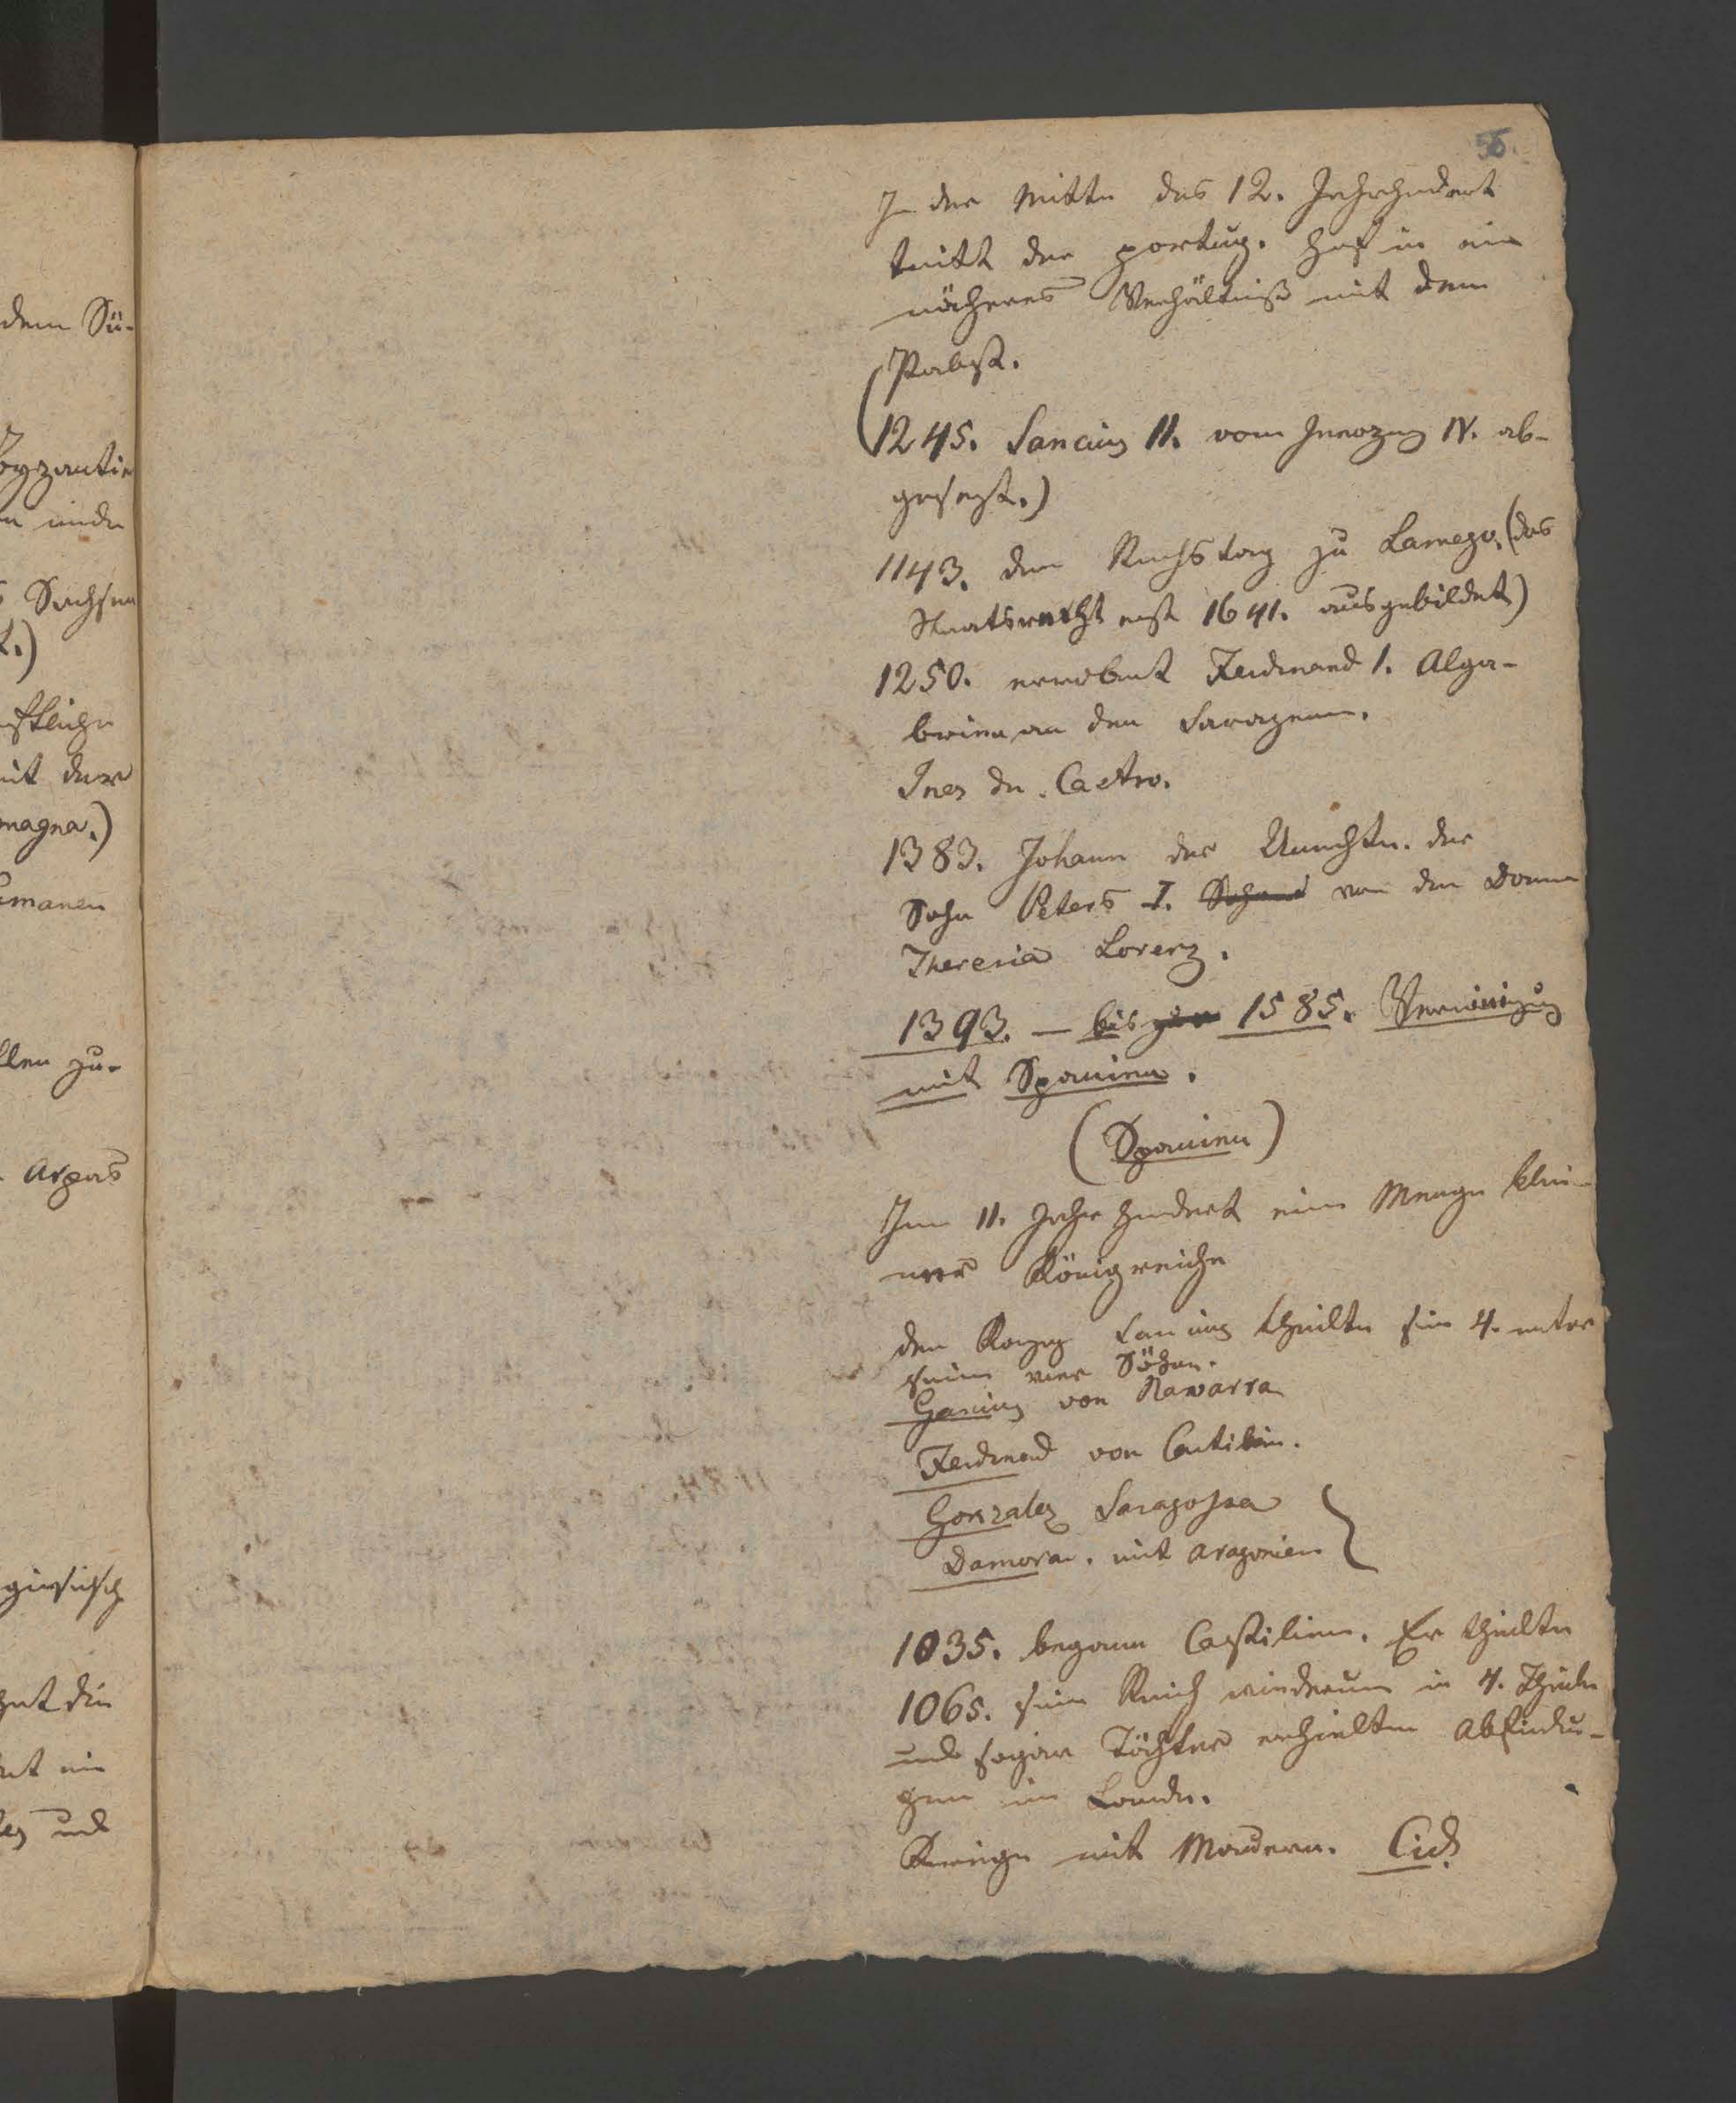 dem Sü-
Byzantin
Sachsen
t.)
mit der
magna.)
llen zu-
Arpas
56.
In der Mitte des 12. Jahrhundert
tritt der portug. Hof in ein
näheres Verhältniß mit dem
Pabst.
(1245. Sancius II. vom Innozenz IV. ab-
gesezt.)
1143. den Reichstag zu Lamego. (das
Staatsrecht erst 1641. ausgebildet)
1250. erwobert Ferdinand I. Alga-
brien an den Sarazenen.
Ines de. Castro.
1383. Johann der Unechte. der
Sohn Peters I. von der Donna
Theresia Lorenz.
1393. – bis 1585. Vereinigung
mit Spanien.
(Spanien)
Im 11. Jahrhundert eine Menge klei-
ner Königreiche
der König Sancius theilte sie 4. unter
seine vier Söhne.
Garcius von Navarra
Ferdinand von Castilien.
Gonzalez Saragossa
Damora. mit Aragonien
1035. begann Castilien. Er theilte
1065. sein Reich wiederum in 4. Theile
und sogar Töchter erhielten Abfindun-
gen im Lande.
Kriege mit Mauren. Cid.